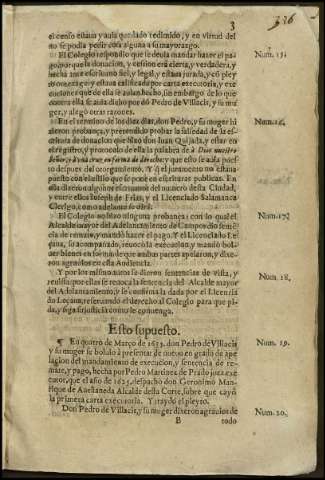 3
el censo estaua y auia quedado redimido, y en virtud del
no se podia pedir cosa alguna a su mayorazgo.
El Colegio respondio que se deuia mandar hazer el pa-
go, porque la donacion, y cession era cierta, y verdadera, y
hecha ante escriuano fiel, y legal, y estaua jurada, y cõ ple
to omenage y estaua calificada por carta executoria, y exe
cuciones que de ella se auian hecho, sin embargo de lo que
contra ella se auia dicho por dõ Pedro de Villacis, y su mu
ger, y alegò otras razones.
Num. 15.
En el termino de los diez dias, don Pedro, y su muger hi
zieron probança, y pretendido probar la falsedad de la es-
critura de donacion que hizo don Iuan Quijada, y estar en
el registro, y protocolo de ella la palabra de à Dios nuestro
Señor, y à vna cruz en forma de derecho, y que esto se auia pues
to despues del otorgamiento. Y q̃ el juramento no estaua
puesto con el estilo que se pone en escrituras publicas. En
ella dizen algunos escriuanos del numero desta Ciudad,
y entre ellos Ioseph de Frias, y el Licenciado Salamanca
Clerigo, como adelante se dirà.
Num. 16.
El Colegio no hizo ninguna probança: con lo qual el
Alcalde mayor del Adelantamiento de Campos dio senten
cia de remate, y mandò hazer el pago. Y el Licenciado Le
çana, su acompañado, reuocò la execucion, y mandò bol-
uer bienes en forma de que ambas partes apelaron, y dixe-
ron agrauios en esta Audiencia.
Num. 17.
Y por los mismos autos se dieron sentencias de vista, y
reuista, por ellas se reuoca la sentencia del Alcalde mayor
del Adelantamiento, y se confirma la dada por el Licencia
do Leçana, reseruando el derecho al Colegio para que pi-
da, y siga su justicia como le conuenga.
Num. 18.
Esto supuesto.
¶ En quatro de Março de 1653. don Pedro de Villacis
y su muger se boluiò a presentar de nueuo en grado de ape
lacion del mandamiento de execucion, y sentencia de re-
mate, y pago, hecha por Pedro Martinez de Prado juez exe
cutor, que el año de 1625. despachò don Geronimo Man-
rique de Auellaneda Alcalde desta Corte, sobre que cayò
la primera carta executoria. Y traydo el pleyto.
Num. 19.
Don Pedro de Villacis, y su muger dixeron agrauios de
Num. 20.
B
todo